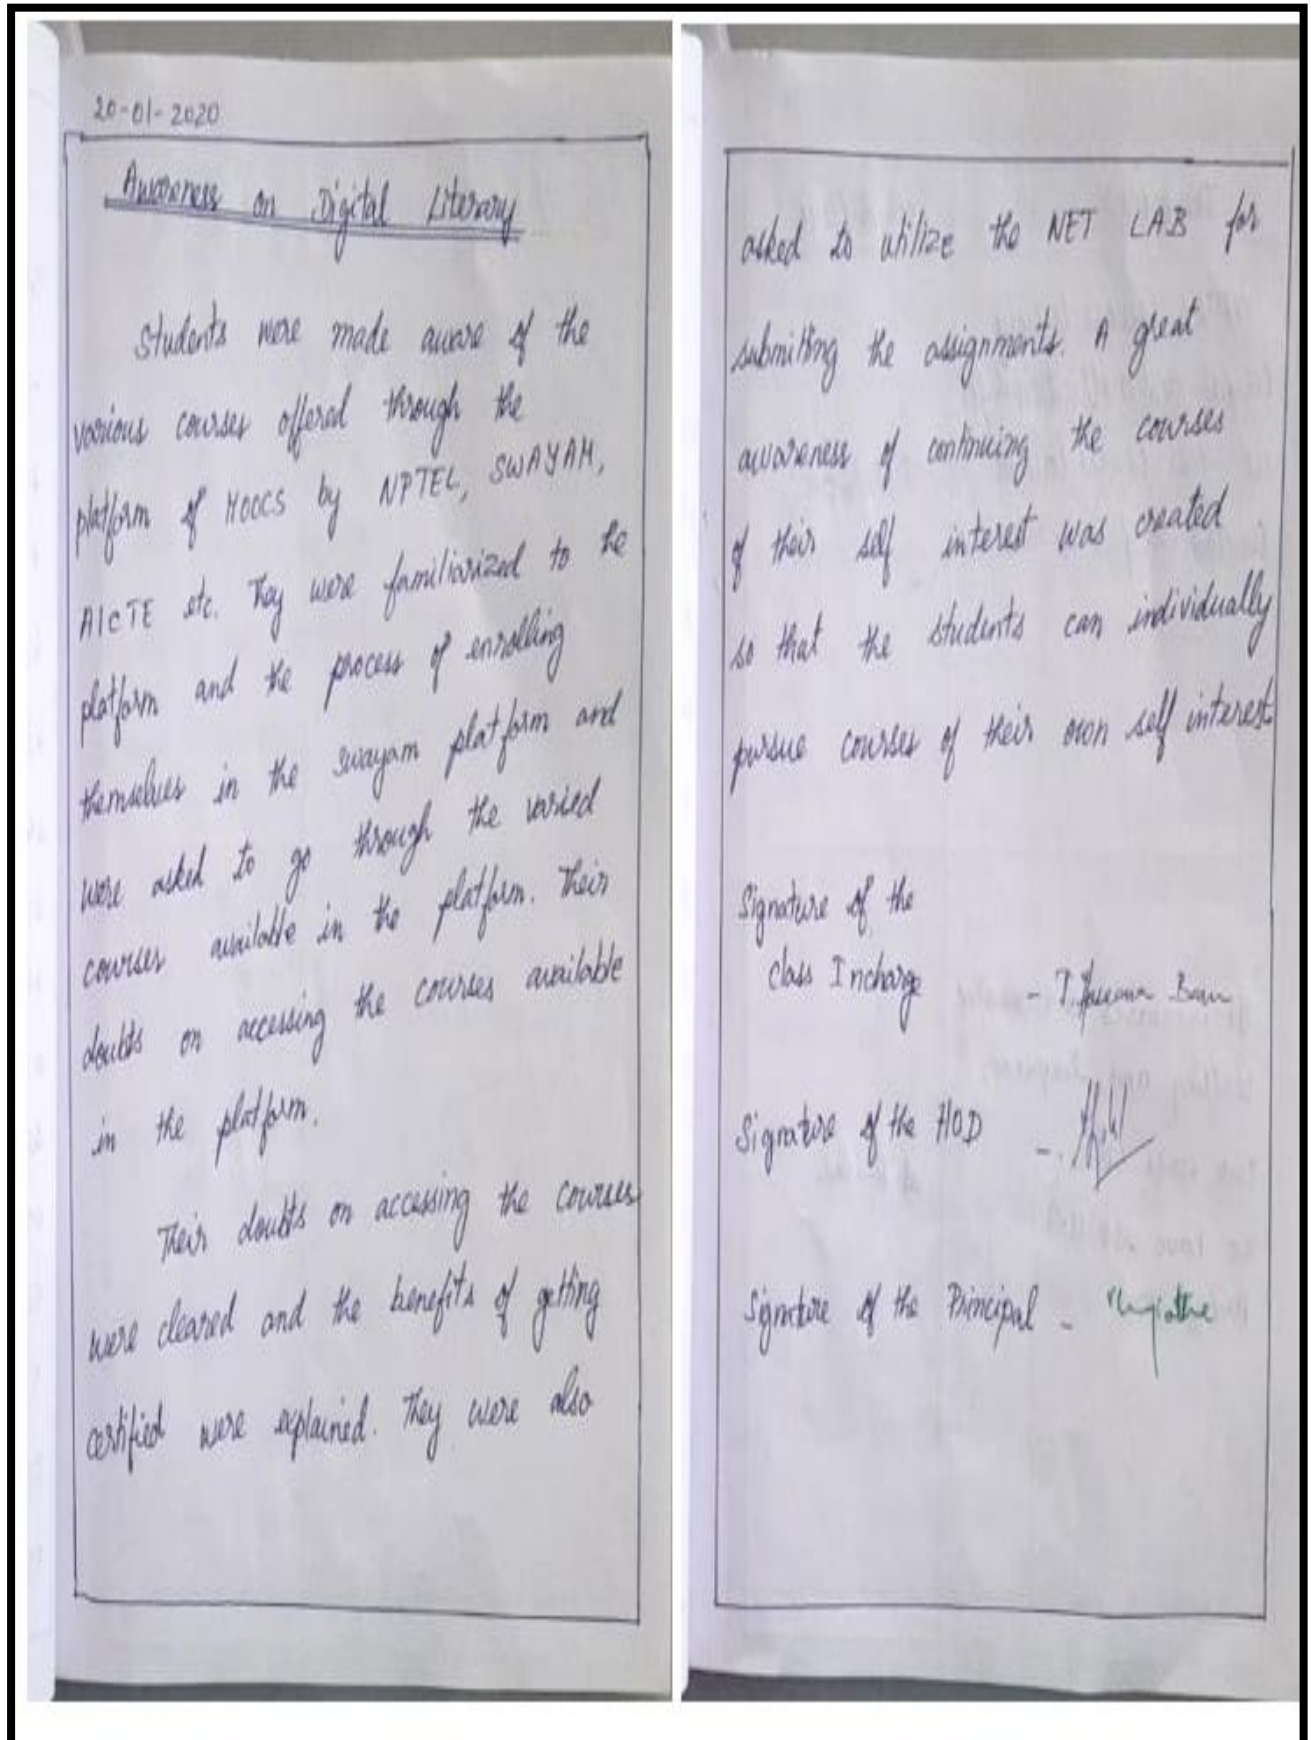 20-01-2020
Awareness on Digital Literary
Students were made aware of the
various courses offered through the
platform of MOOCS by NPTEL, SWAYAM,
AICTE etc. They were familiarized to the
platform and the process of enrolling
themselves in the swayam platform and
were asked to go through the varied
courses available in the platform. Their
doubts on accessing the courses available
in the platform.
Their doubts on accessing the courses
were cleared and the benefits of getting
certified were explained. They were also
asked to utilize the NET LAB for
submitting the assignments. A great
awareness of continuing the courses
of their self interest was created
so that the students can individually
pursue courses of their own self interest
Signature of the
class Incharge -
Signature of the HOD -
Signature of the Principal -